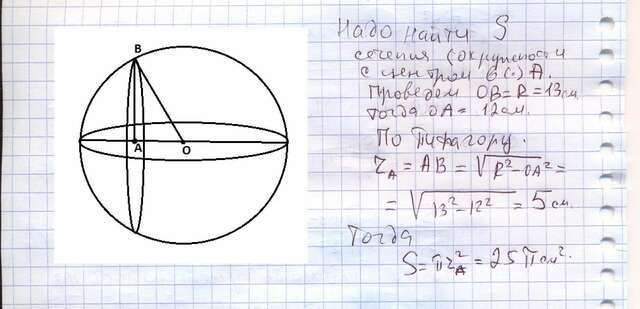 B
A
O
Надо найти S
сечения (окружности
с центром в (.) A.
Проведем OB = R = 13 см
Тогда OA = 12 см.
По Пифагору.
r_A = AB = √(R² - OA²) =
= √(13² - 12²) = 5 см.
Тогда
S = πr_A² = 25π см².